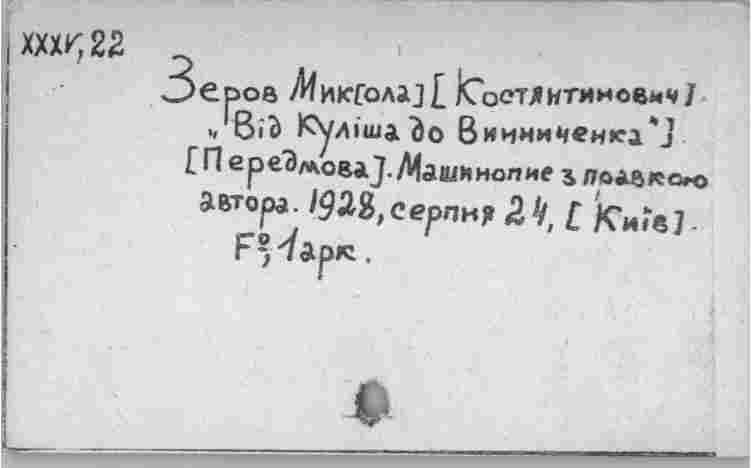 XXXV, 22
Зеров Мик[ола] [Костянтинович].
„Від Куліша до Винниченка"].
[Передмова]. Машинопис з правкою
автора. 1928, серпня 24, [Київ].
F°, 1 арк.